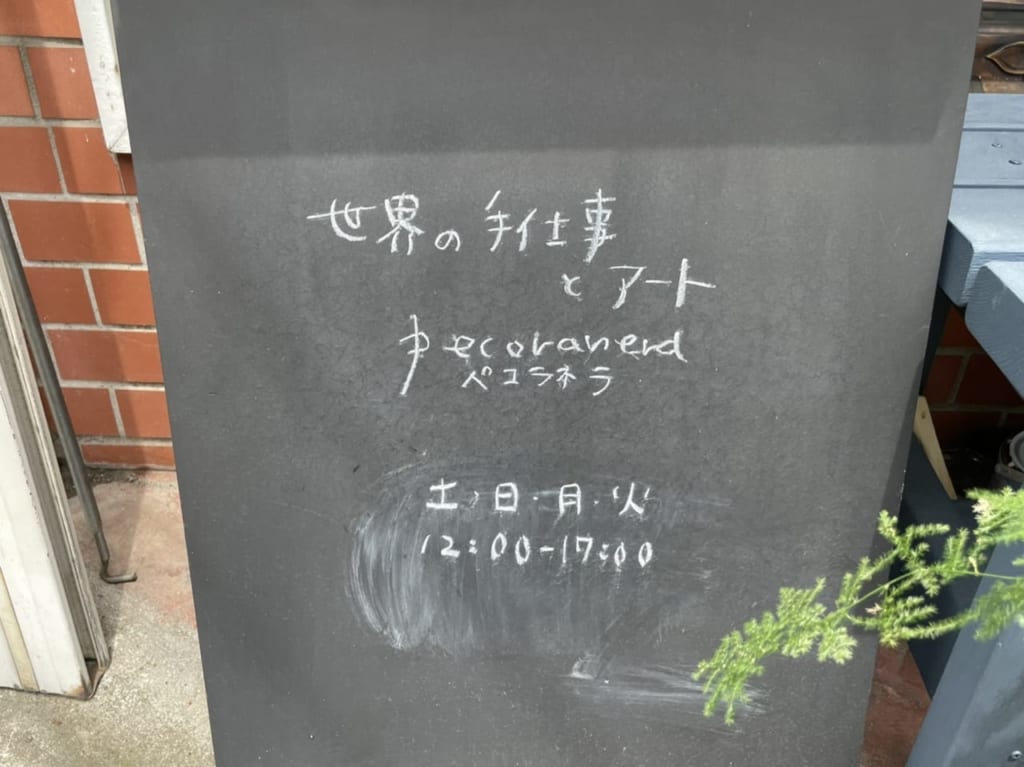 世界の手仕事
とアート
pecoranera
ペコラネラ
土・日・月・火
12:00-17:00